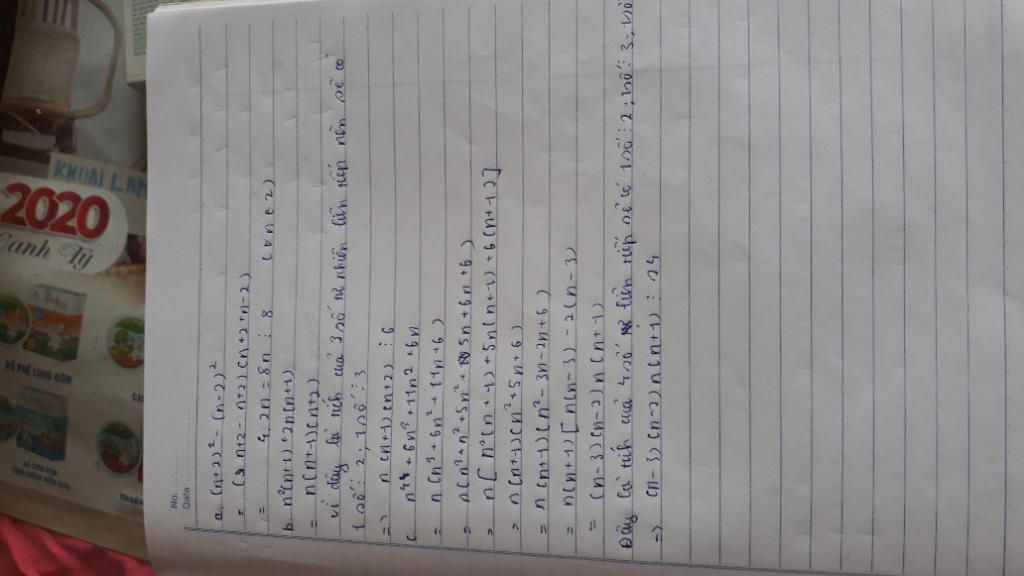 KHOAI LAN
2020
Canh Tý
No.
Date
a. (n+2)² - (n-2)²
= (n+2-n+2)(n+2+n-2)
= 4.2n = 8n ⋮ 8 (∀n∈Z)
b. n²(n+1)+2n(n+1)
= n(n+1)(n+2)
vì đây là tích của 3 số tự nhiên liên tiếp nên sẽ có
1 số ⋮ 2; 1 số ⋮ 3
=> n(n+1)(n+2) ⋮ 6
c. n⁴+6n³+11n²+6n
= n(n³+6n²+11n+6)
= n(n³+n²+5n²+5n+6n+6)
= n[n²(n+1)+5n(n+1)+6(n+1)]
= n(n+1)(n²+5n+6)
= n(n+1)(n²-3n-2n+6)
= n(n+1)[n(n-3)-2(n-3)]
= (n-3)(n-2)n(n+1)
Đây là tích của 4 số liên tiếp sẽ có 1 số ⋮ 2; 1 số ⋮ 3; 1 số
=> (n-3)(n-2)n(n+1) ⋮ 24